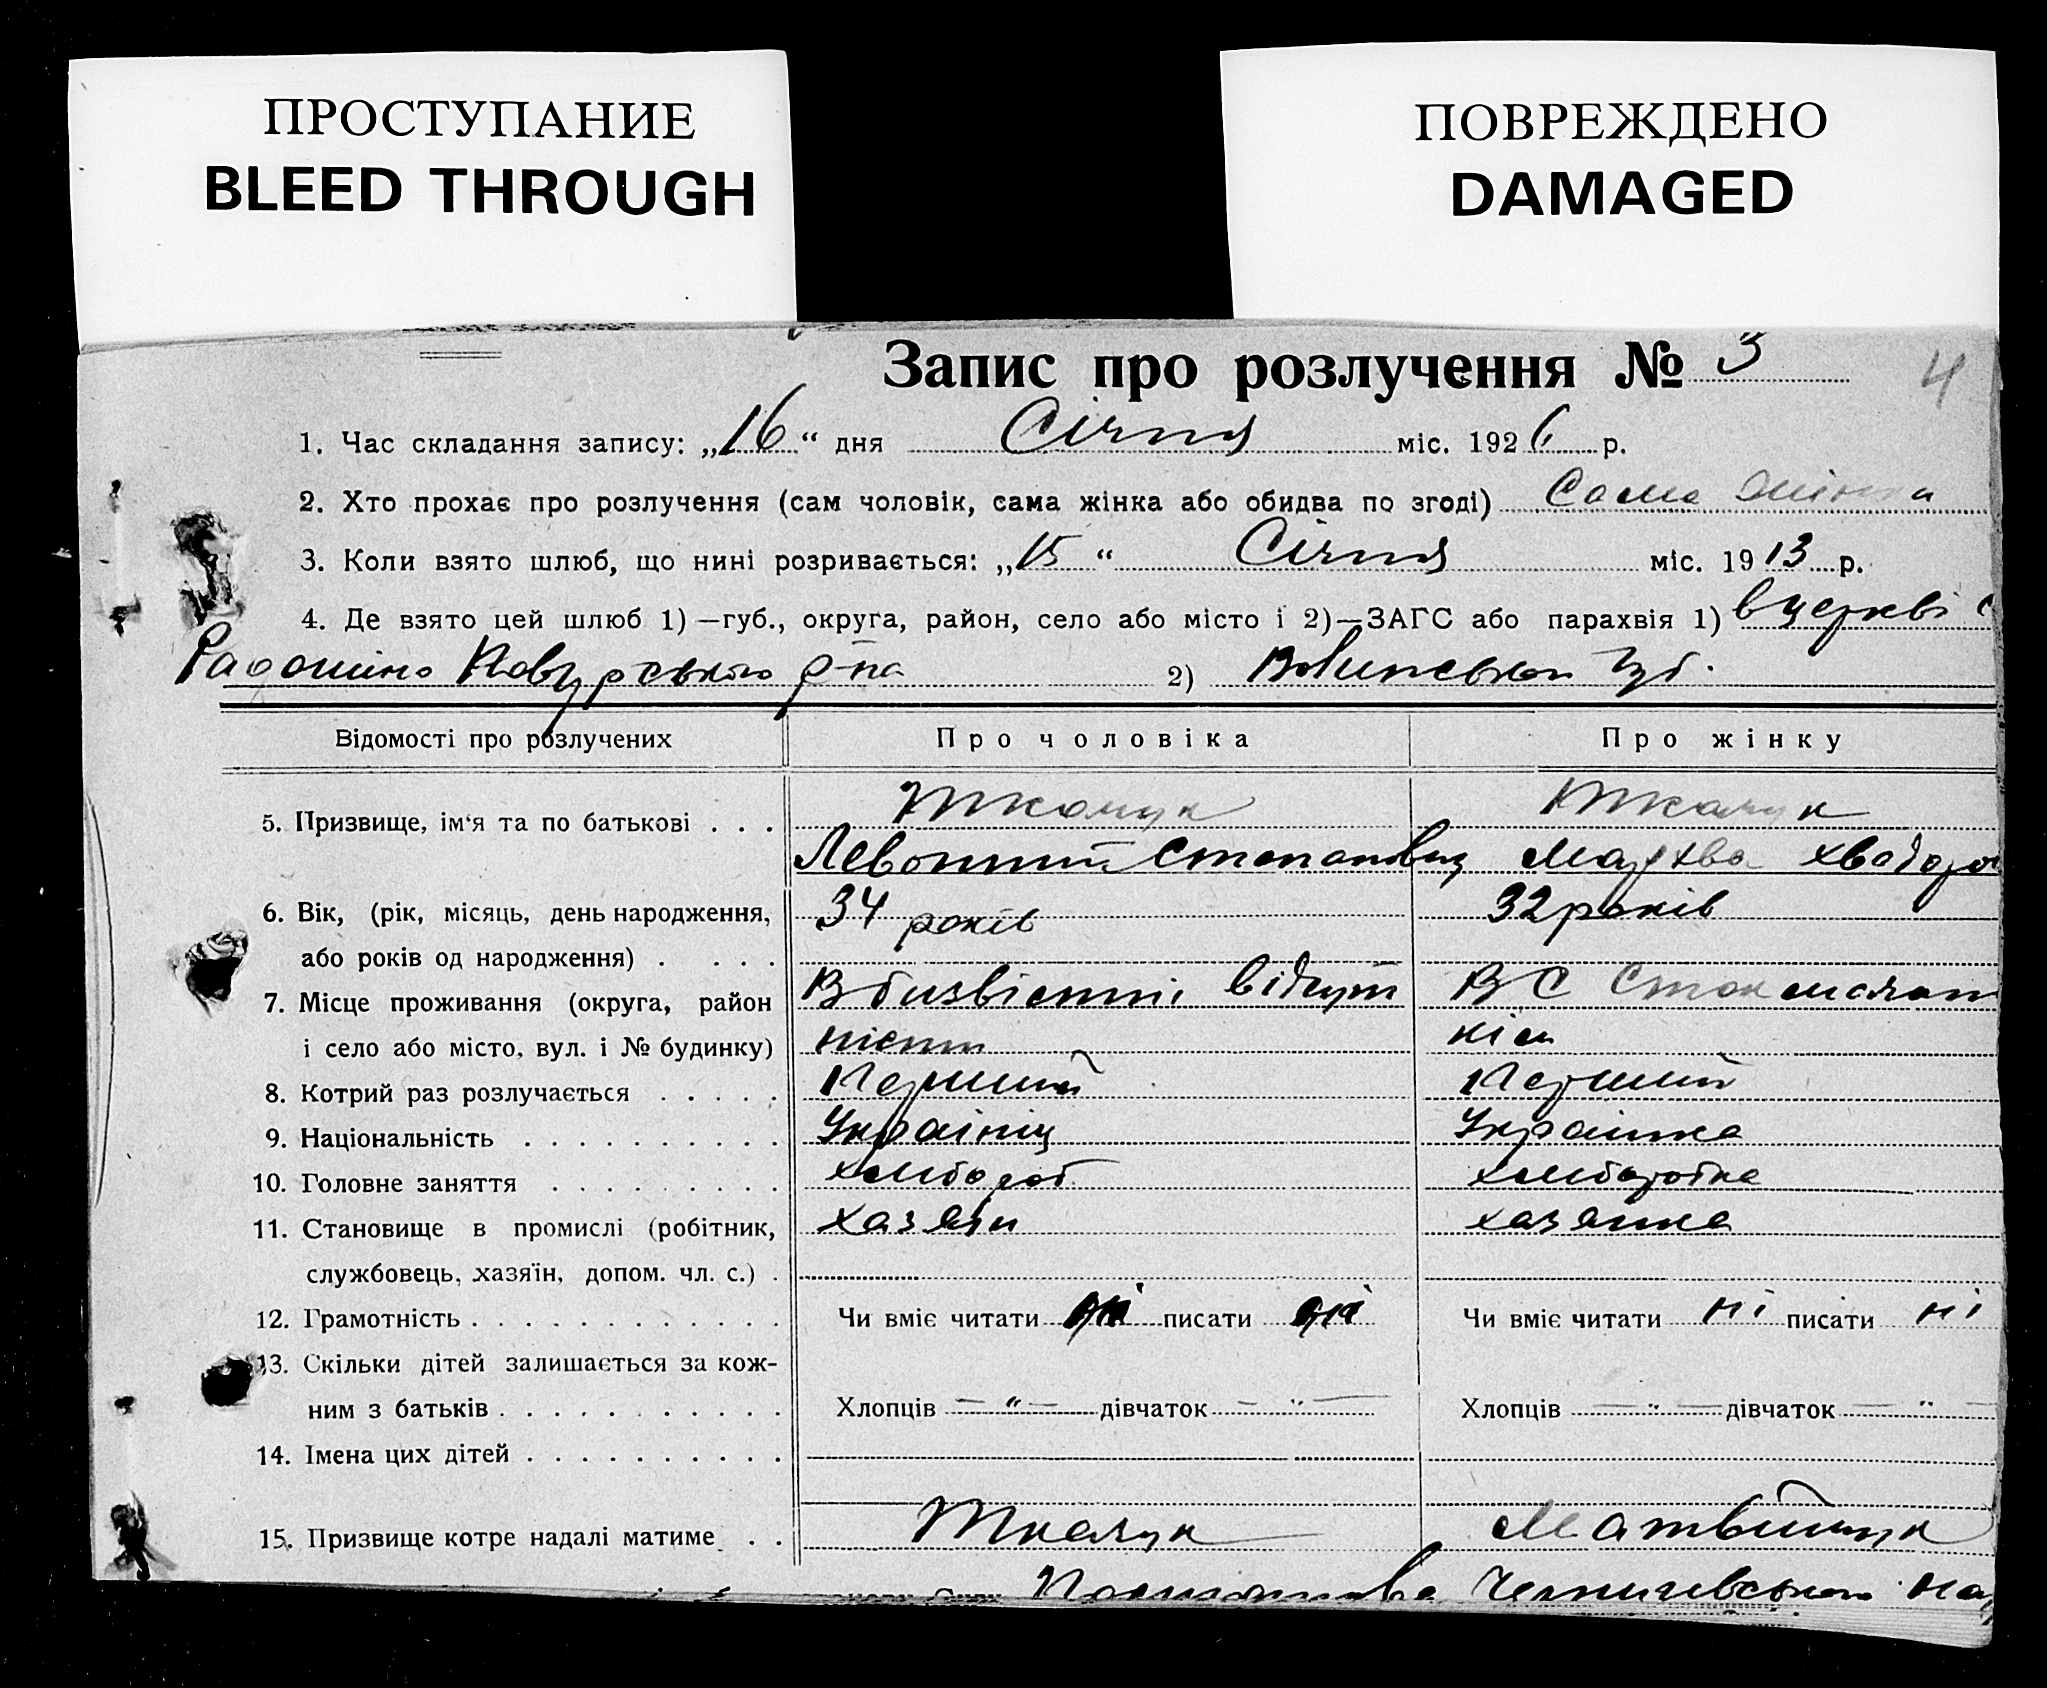 ПРОСТУПАНИЕ
BLEED THROUGH
ПОВРЕЖДЕНО
DAMAGED
Запис про розлучення № 3
4
1. Час складання запису: „16“ дня Січня міс. 1926 р.
2. Хто прохає про розлучення (сам чоловік, сама жінка або обидва по згоді) Сама жінка
3. Коли взято шлюб, що нині розривається: „15“ Січня міс. 1913 р.
4. Де взято цей шлюб 1)—губ., округа, район, село або місто і 2)—ЗАГС або парахвія 1) в церкві с
2) Волинської губ.
Відомості про розлучених Про чоловіка Про жінку
5. Призвище, ім‘я та по батькові . . . Ткачук Ткачук
Степанович
6. Вік, (рік, місяць, день народження, 34 років 32 років
або років од народження) . . . .
7. Місце проживання (округа, район В безвістні відсут В С
і село або місто, вул. і № будинку)
8. Котрий раз розлучається . . . . . Перший Перший
9. Національність . . . . . . . . . . Українць Українка
10. Головне заняття . . . . . . . . . хлібороб хліборобка
11. Становище в промислі (робітник, хазяїн хазяйка
службовець, хазяїн, допом. чл. с.) .
12. Грамотність . . . . . . . . . . . . Чи вміє читати ні писати ні Чи вміє читати ні писати ні
13. Скільки дітей залишається за кож-
ним з батьків . . . . . . . . . . . Хлопців — „ — дівчаток — „ — Хлопців — „ — дівчаток — „ —
14. Імена цих дітей . . . . . . . . . .
15. Призвище котре надалі матиме . . Ткачук Матвійчук
Постанова